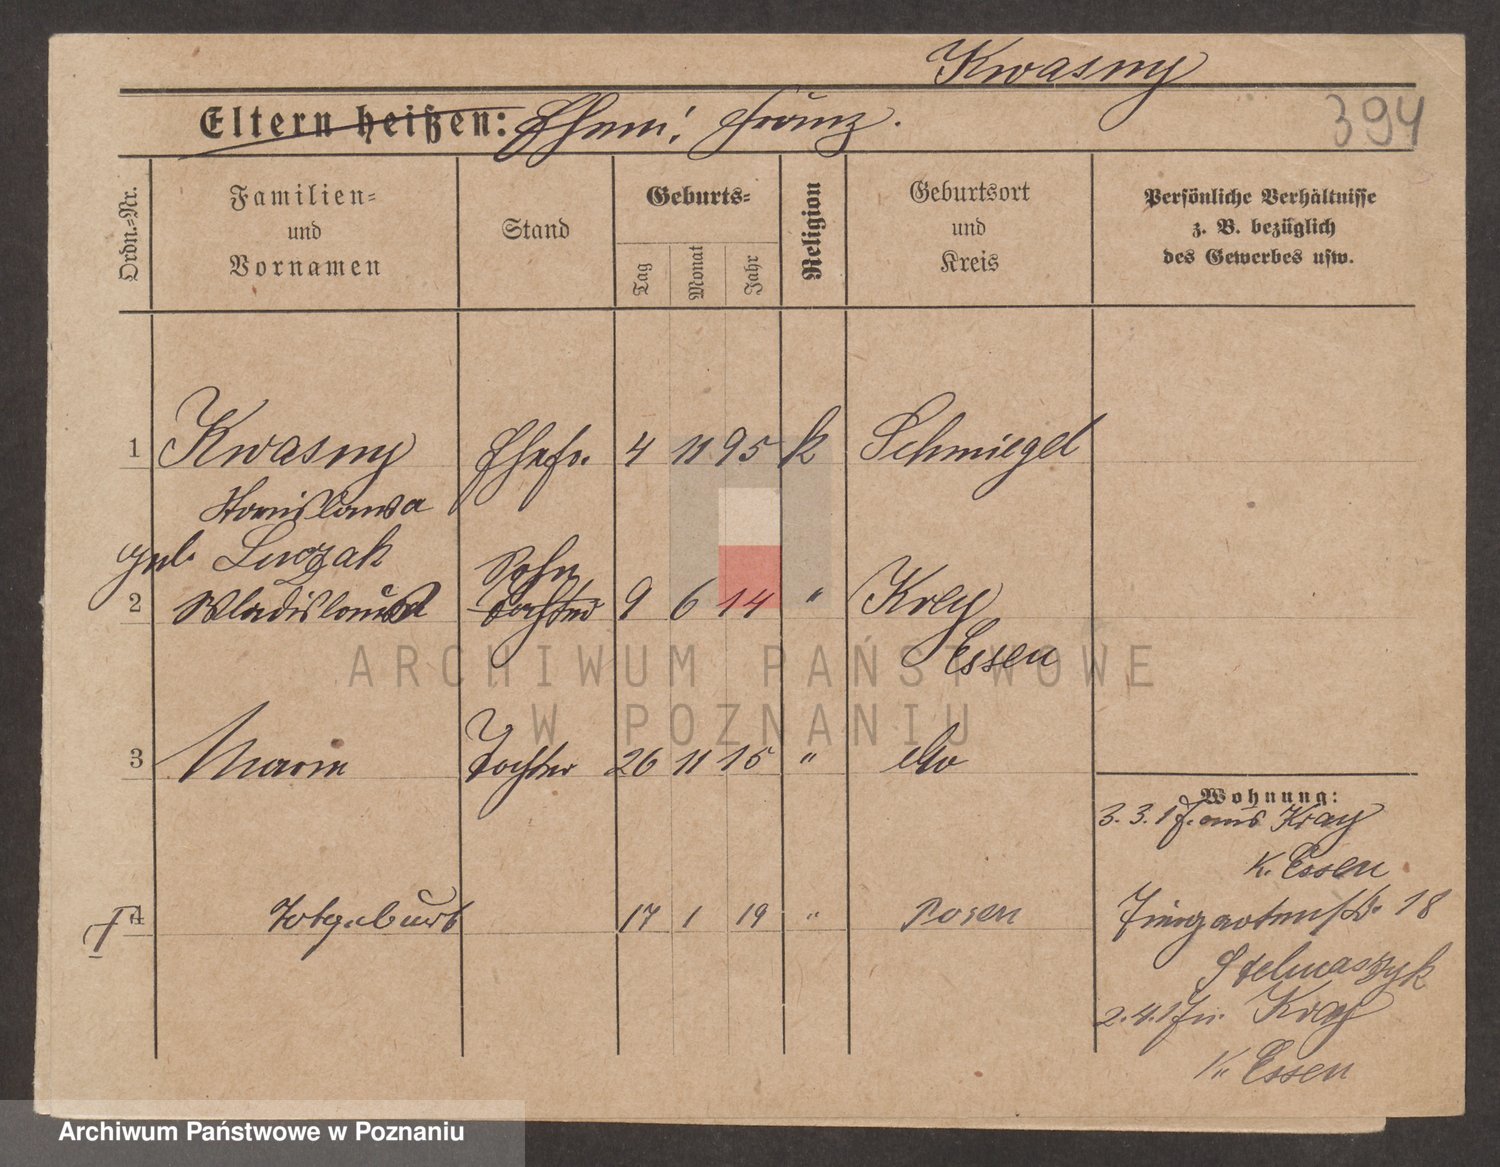 Kwasny
Eltern heißen: Ehem: Franz.
394
Ordn.-Nr.
Familien-
und
Vornamen
Stand
Geburts-
Tag
Monat
Jahr
Religion
Geburtsort
und
Kreis
Persönliche Verhältnisse
z. B. bezüglich
des Gewerbes usw.
1 Kwasny Ehefr. 4 11 95 k Schmiegel
Stanislawa
geb.
Sohn
2 Wladislaus Tochter 9 6 14 " Krey
Essen
3 Maria Tochter 26 11 15 " dto
Wohnung:
3. 3. 17. aus Kray
K. Essen
4 Totgeburt 17 1 19 " Posen
18
2. 4. 17 Kray
K. Essen
ARCHIWUM PAŃSTWOWE
W POZNANIU
Archiwum Państwowe w Poznaniu